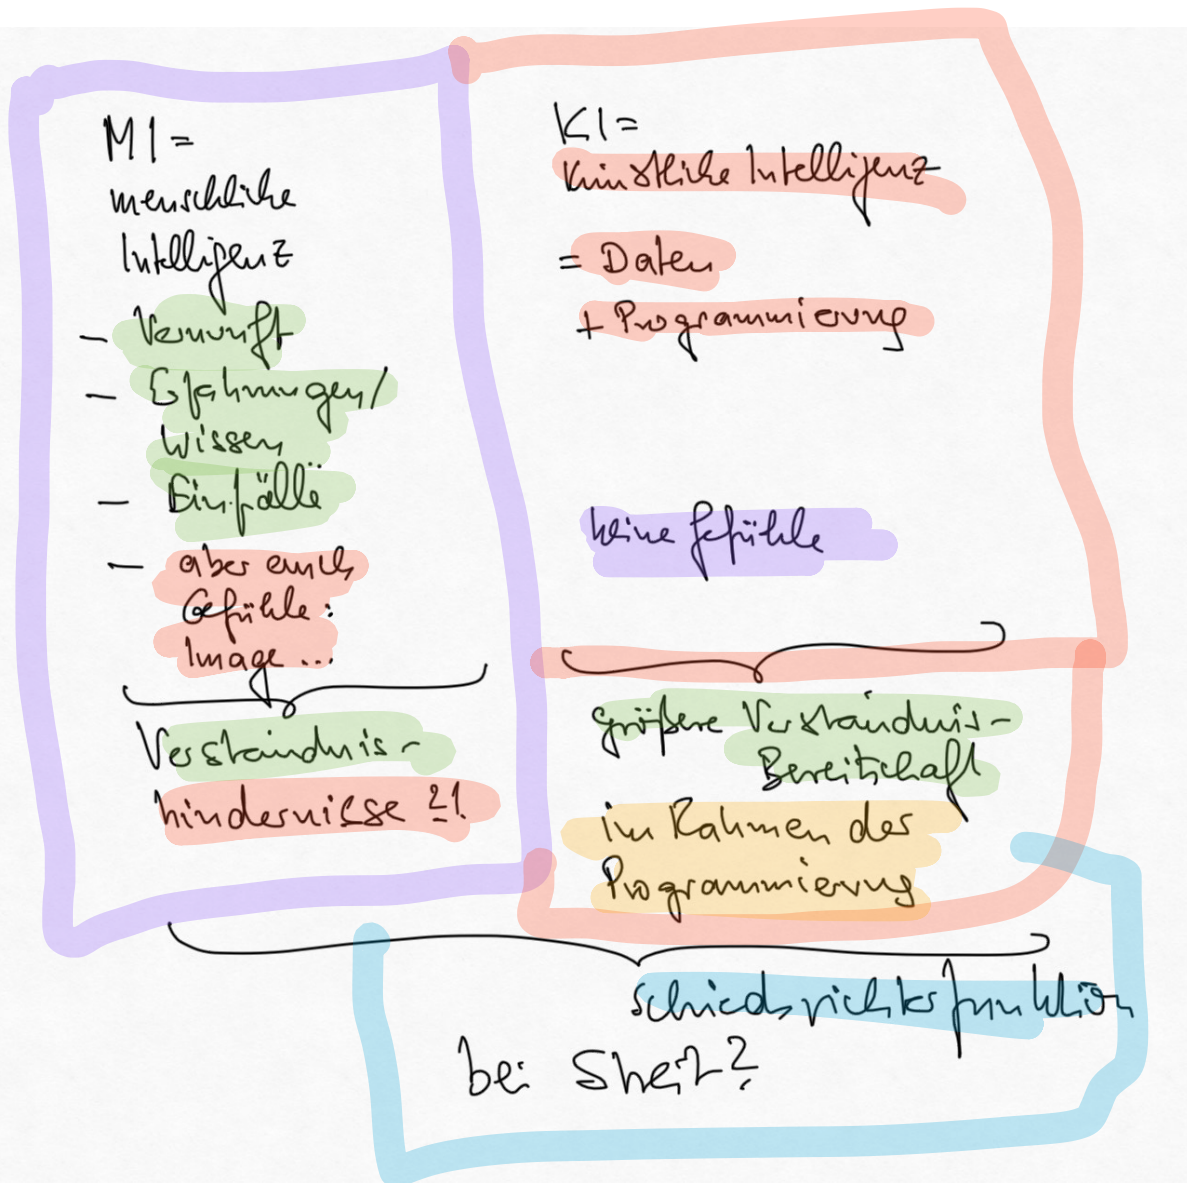 MI =
menschliche
Intelligenz
- Vernunft
- Erfahrungen/
Wissen
- Einfälle
- aber auch
Gefühle:
Image ...
Verständnis-
hindernisse ?!
KI =
Künstliche Intelligenz
= Daten
+ Programmierung
keine Gefühle
größere Verständnis-
Bereitschaft
im Rahmen der
Programmierung
Schiedsrichterfunktion
bei Streit?